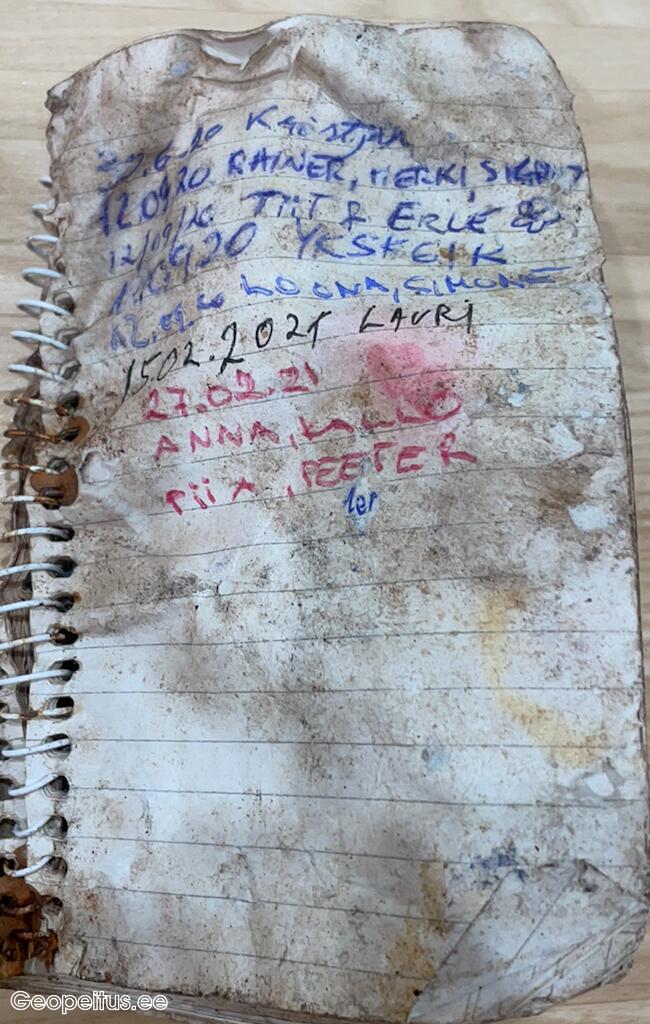 .6.20 Kristjan
12.09.20 RAINER, MERKI,
12/09/20 TIIT & ERLE
.09.20 YKSKEIK
12.09.20 LOONA, SIMONE
15.02.2021 LAURI
27.02.21
ANNA, KALLE
PiiA, PEETER
Geopeitus.ee